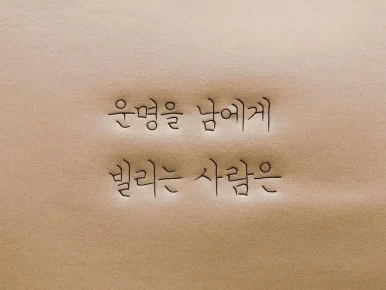 운명을 남에게
빌리는 사람은